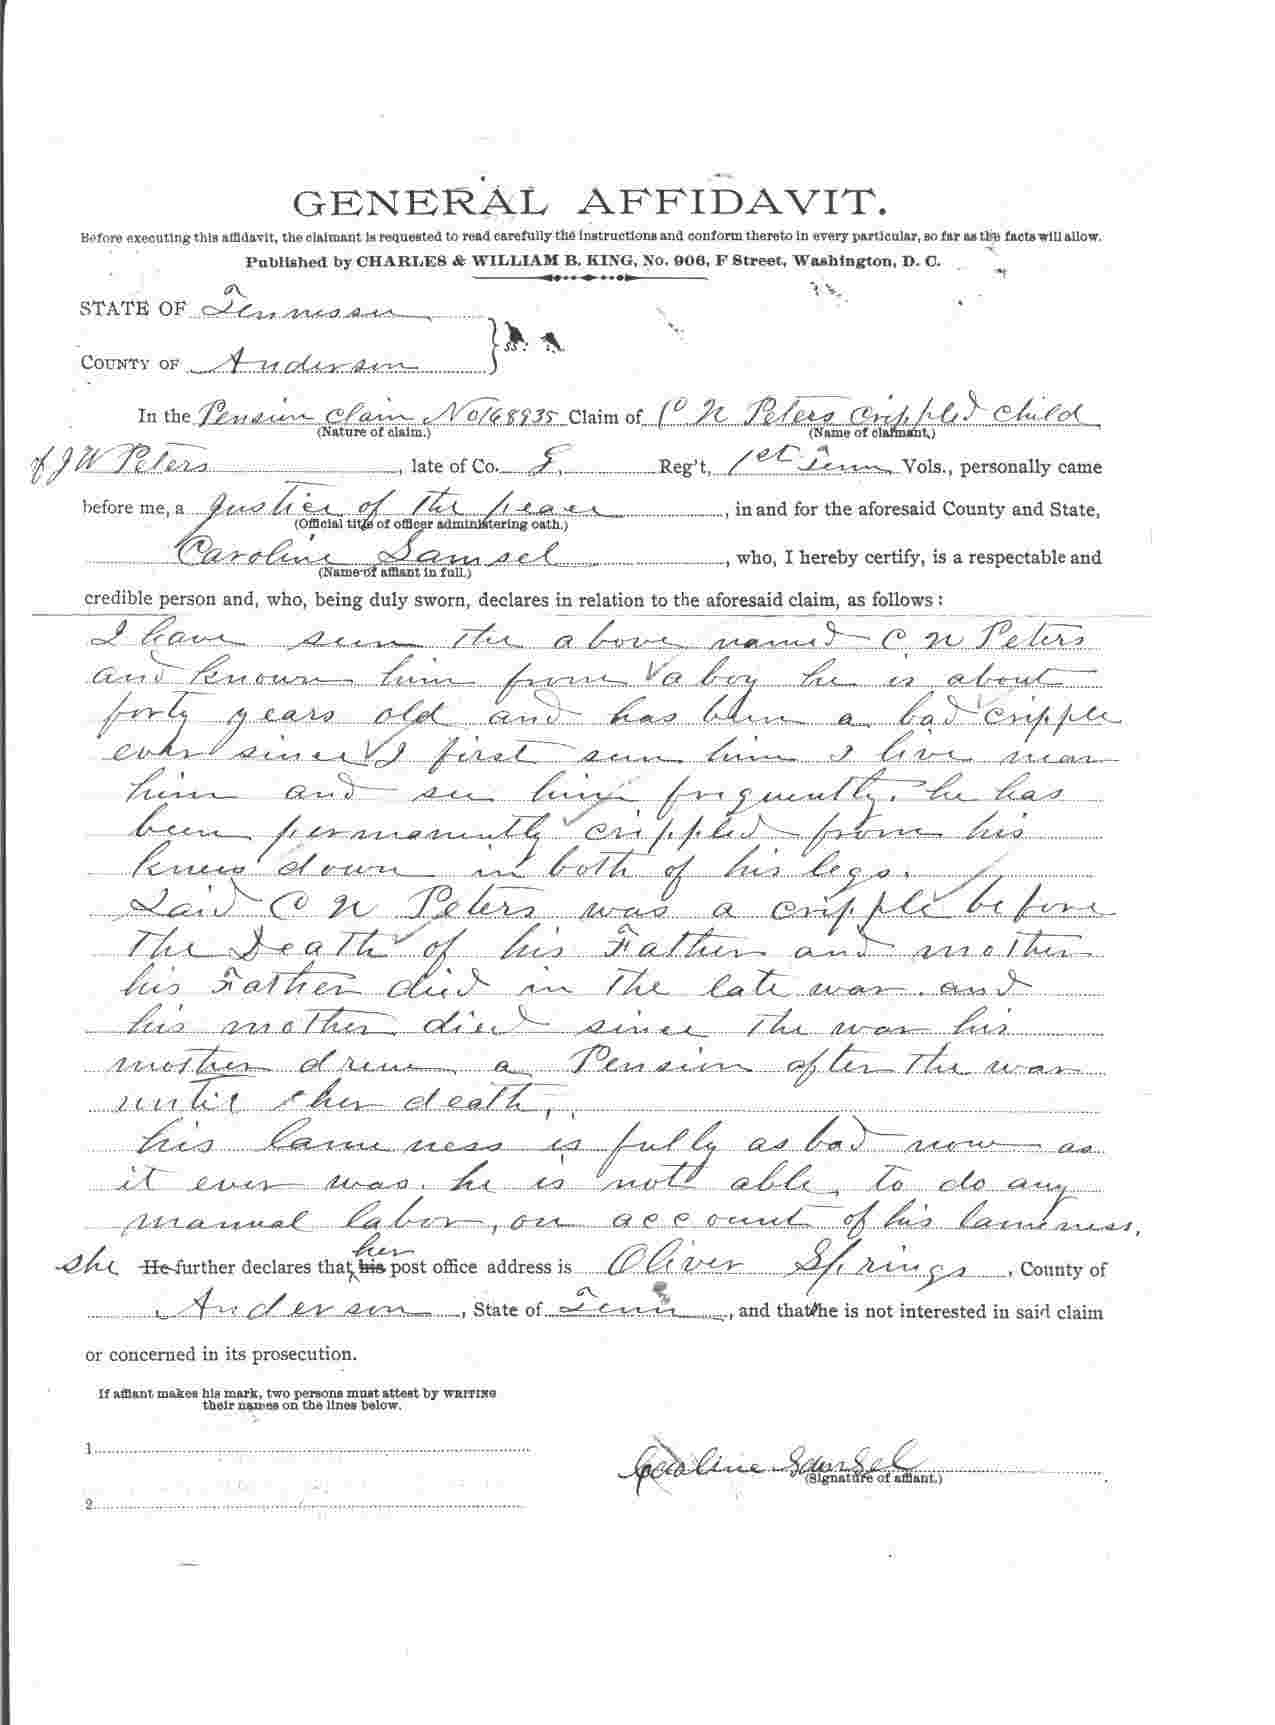 GENERAL AFFIDAVIT.
Before executing this affidavit, the claimant is requested to read carefully the instructions and conform thereto in every particular, so far as the facts will allow.
Published by CHARLES & WILLIAM B. KING, No. 906, F Street, Washington, D. C.
STATE OF Tennessee
ss:
COUNTY OF Anderson
In the Pension claim No 168935 Claim of C N Peters crippled child
(Nature of claim.) (Name of claimant.)
of J W Peters, late of Co. Reg't, 1st Tenn Vols., personally came
before me, a justice of the peace, in and for the aforesaid County and State,
(Official title of officer administering oath.)
Caroline Samsel, who, I hereby certify, is a respectable and
(Name of affiant in full.)
credible person and, who, being duly sworn, declares in relation to the aforesaid claim, as follows:
I have seen the above named C N Peters
and known him from a boy he is about
forty years old and has been a bad cripple
ever since I first seen him I live near
him and see him frequently. he has
been permanently crippled from his
knees down in both of his legs.
Said C N Peters was a cripple before
the Death of his Father and mother
his Father died in the late war. and
his mother died since the war his
mother drew a Pension after the war
until her death,
his lameness is fully as bad now as
it ever was. he is not able, to do any
manual labor, on account of his lameness,
she He further declares that her his post office address is Oliver Springs, County of
Anderson, State of Tenn, and that she is not interested in said claim
or concerned in its prosecution.
If affiant makes his mark, two persons must attest by WRITING
their names on the lines below.
1
Caroline Samsel
(Signature of affiant.)
2